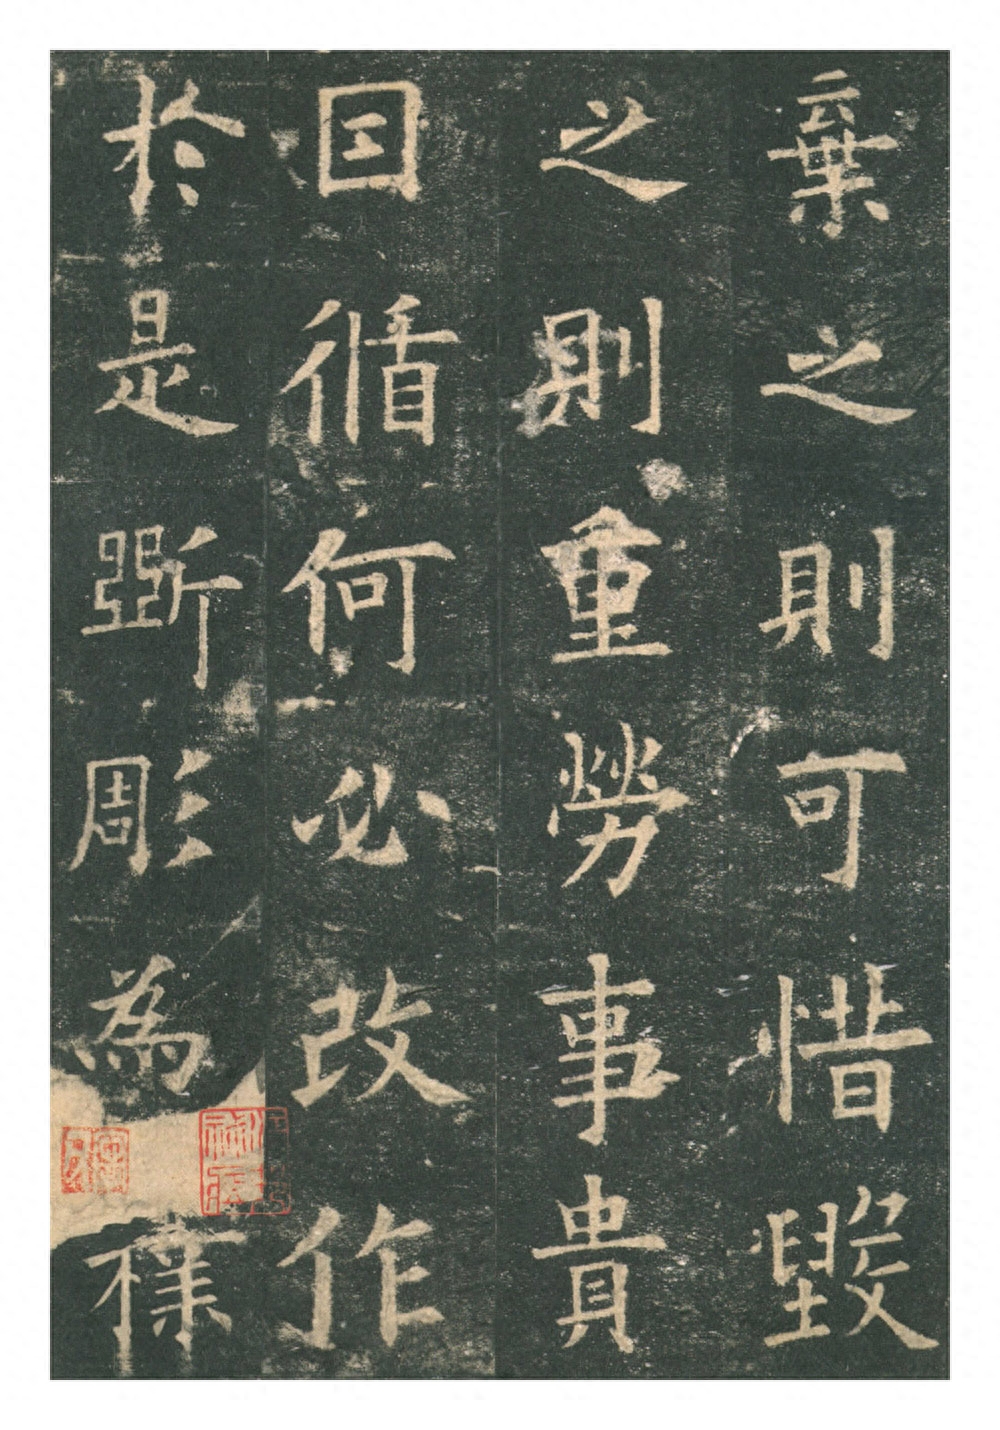 棄之則可惜毀
之則重勞事貴
因循何必改作
於是斲彫為樸